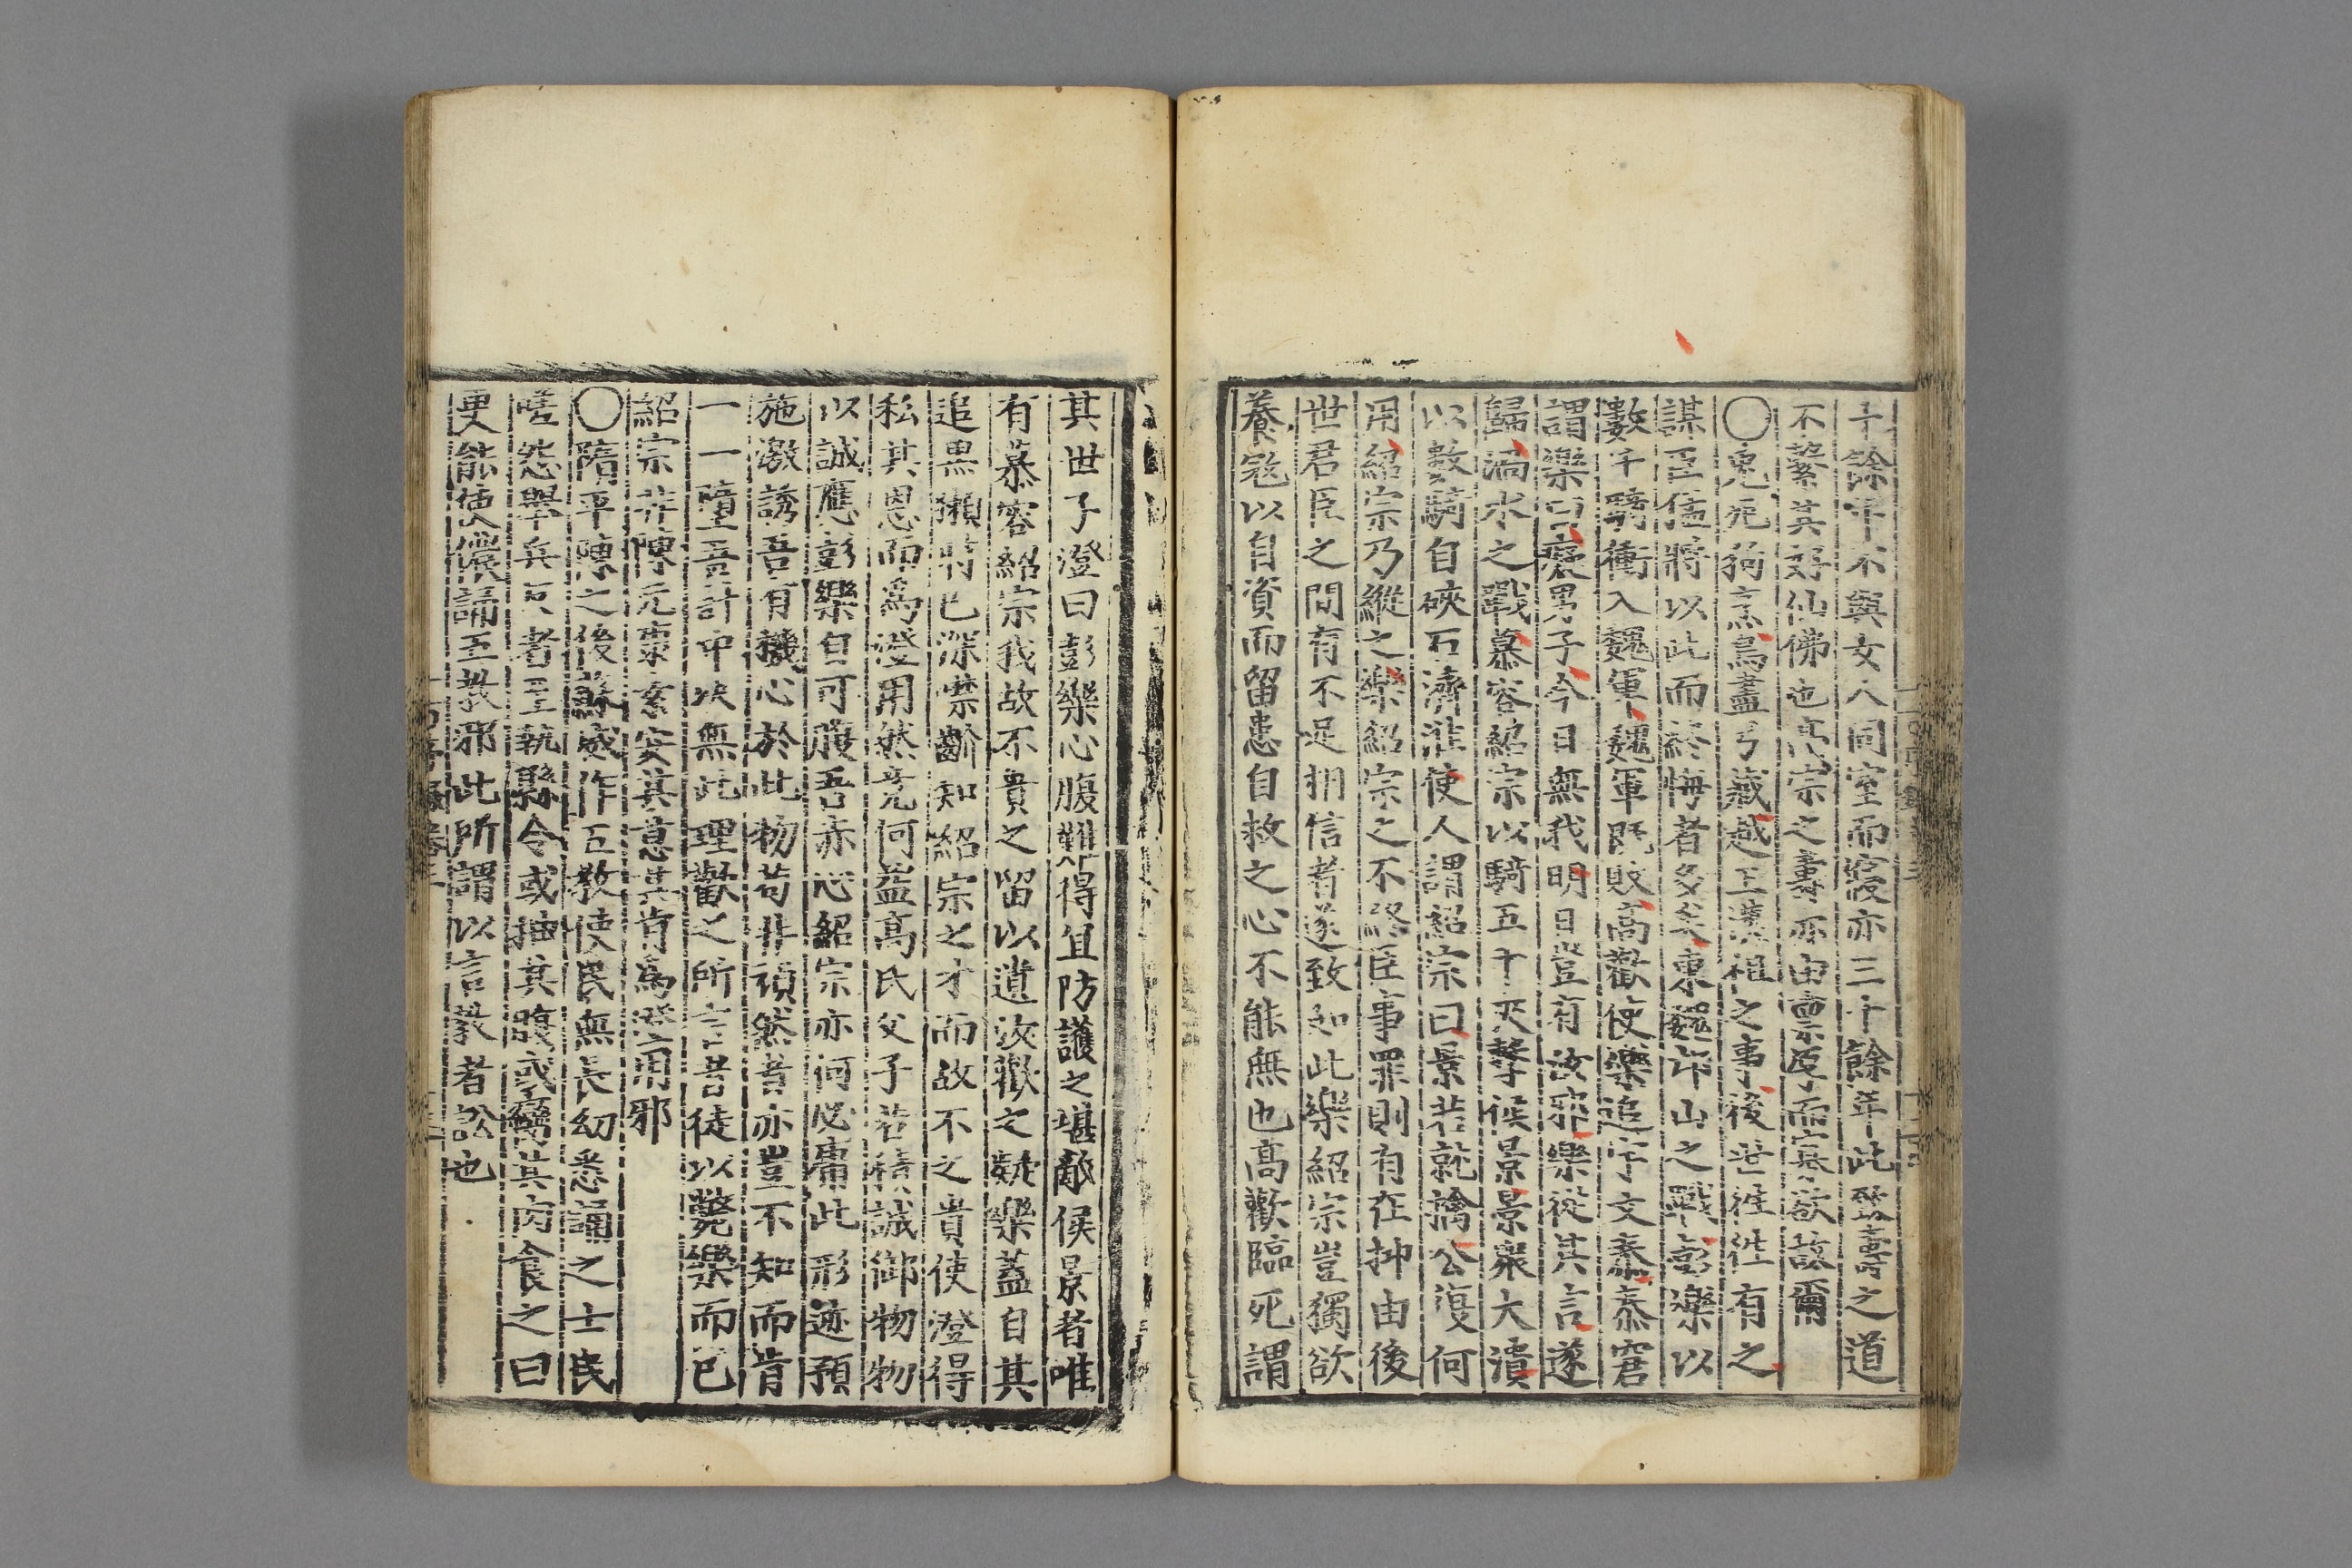 十餘年不與女人同室而寢亦三十餘年此發壽之道
不繫其好仙佛也高宗之壽亦由稟厚而寡欲故爾
○兎死狗烹鳥盡弓藏越王漢祖之事後世徃徃有之
謀臣猛將以此而終悔者多矣東魏邙山之戰彭樂以
數千騎衝入魏軍魏軍旣敗高歡使樂追宇文泰泰窘
謂樂曰癡男子今日無我明日豈有汝邪樂從其言遂
歸渦水之戰慕容紹宗以騎五千夾擊侯景景衆大潰
以數騎自硤石濟淮使人謂紹宗曰景若就擒公復何
用紹宗乃縱之樂紹宗之不終臣事罪則有在抑由後
世君臣之間有不足相信者遂致如此樂紹宗豈獨欲
養寇以自資而留患自救之心不能無也高歡臨死謂
其世子澄曰彭樂心腹難得且防護之堪敵侯景者唯
有慕容紹宗我故不貴之留以遺汝歡之疑樂蓋自其
追黑獺時已深懷齡知紹宗之才而故不之貴使澄得
私其恩而爲澄用然竟何益高氏父子若積誠御物物
以誠應彭樂自可腹吾赤心紹宗亦何必庸此形迹預
施激誘吾有機心於此物苟非頑然者亦豈不知而肯
一一墮吾計中决無此理歡之所言者徒以斃樂而已
紹宗非陳元康素安其意其肯爲澄用邪
○隋平陳之後蘇威作五敎使民無長幼悉誦之士民
嗟怨擧兵反者至執縣令或抽其膓或臠其肉食之曰
更能使儂誦五敎邪此所謂以言敎者訟也